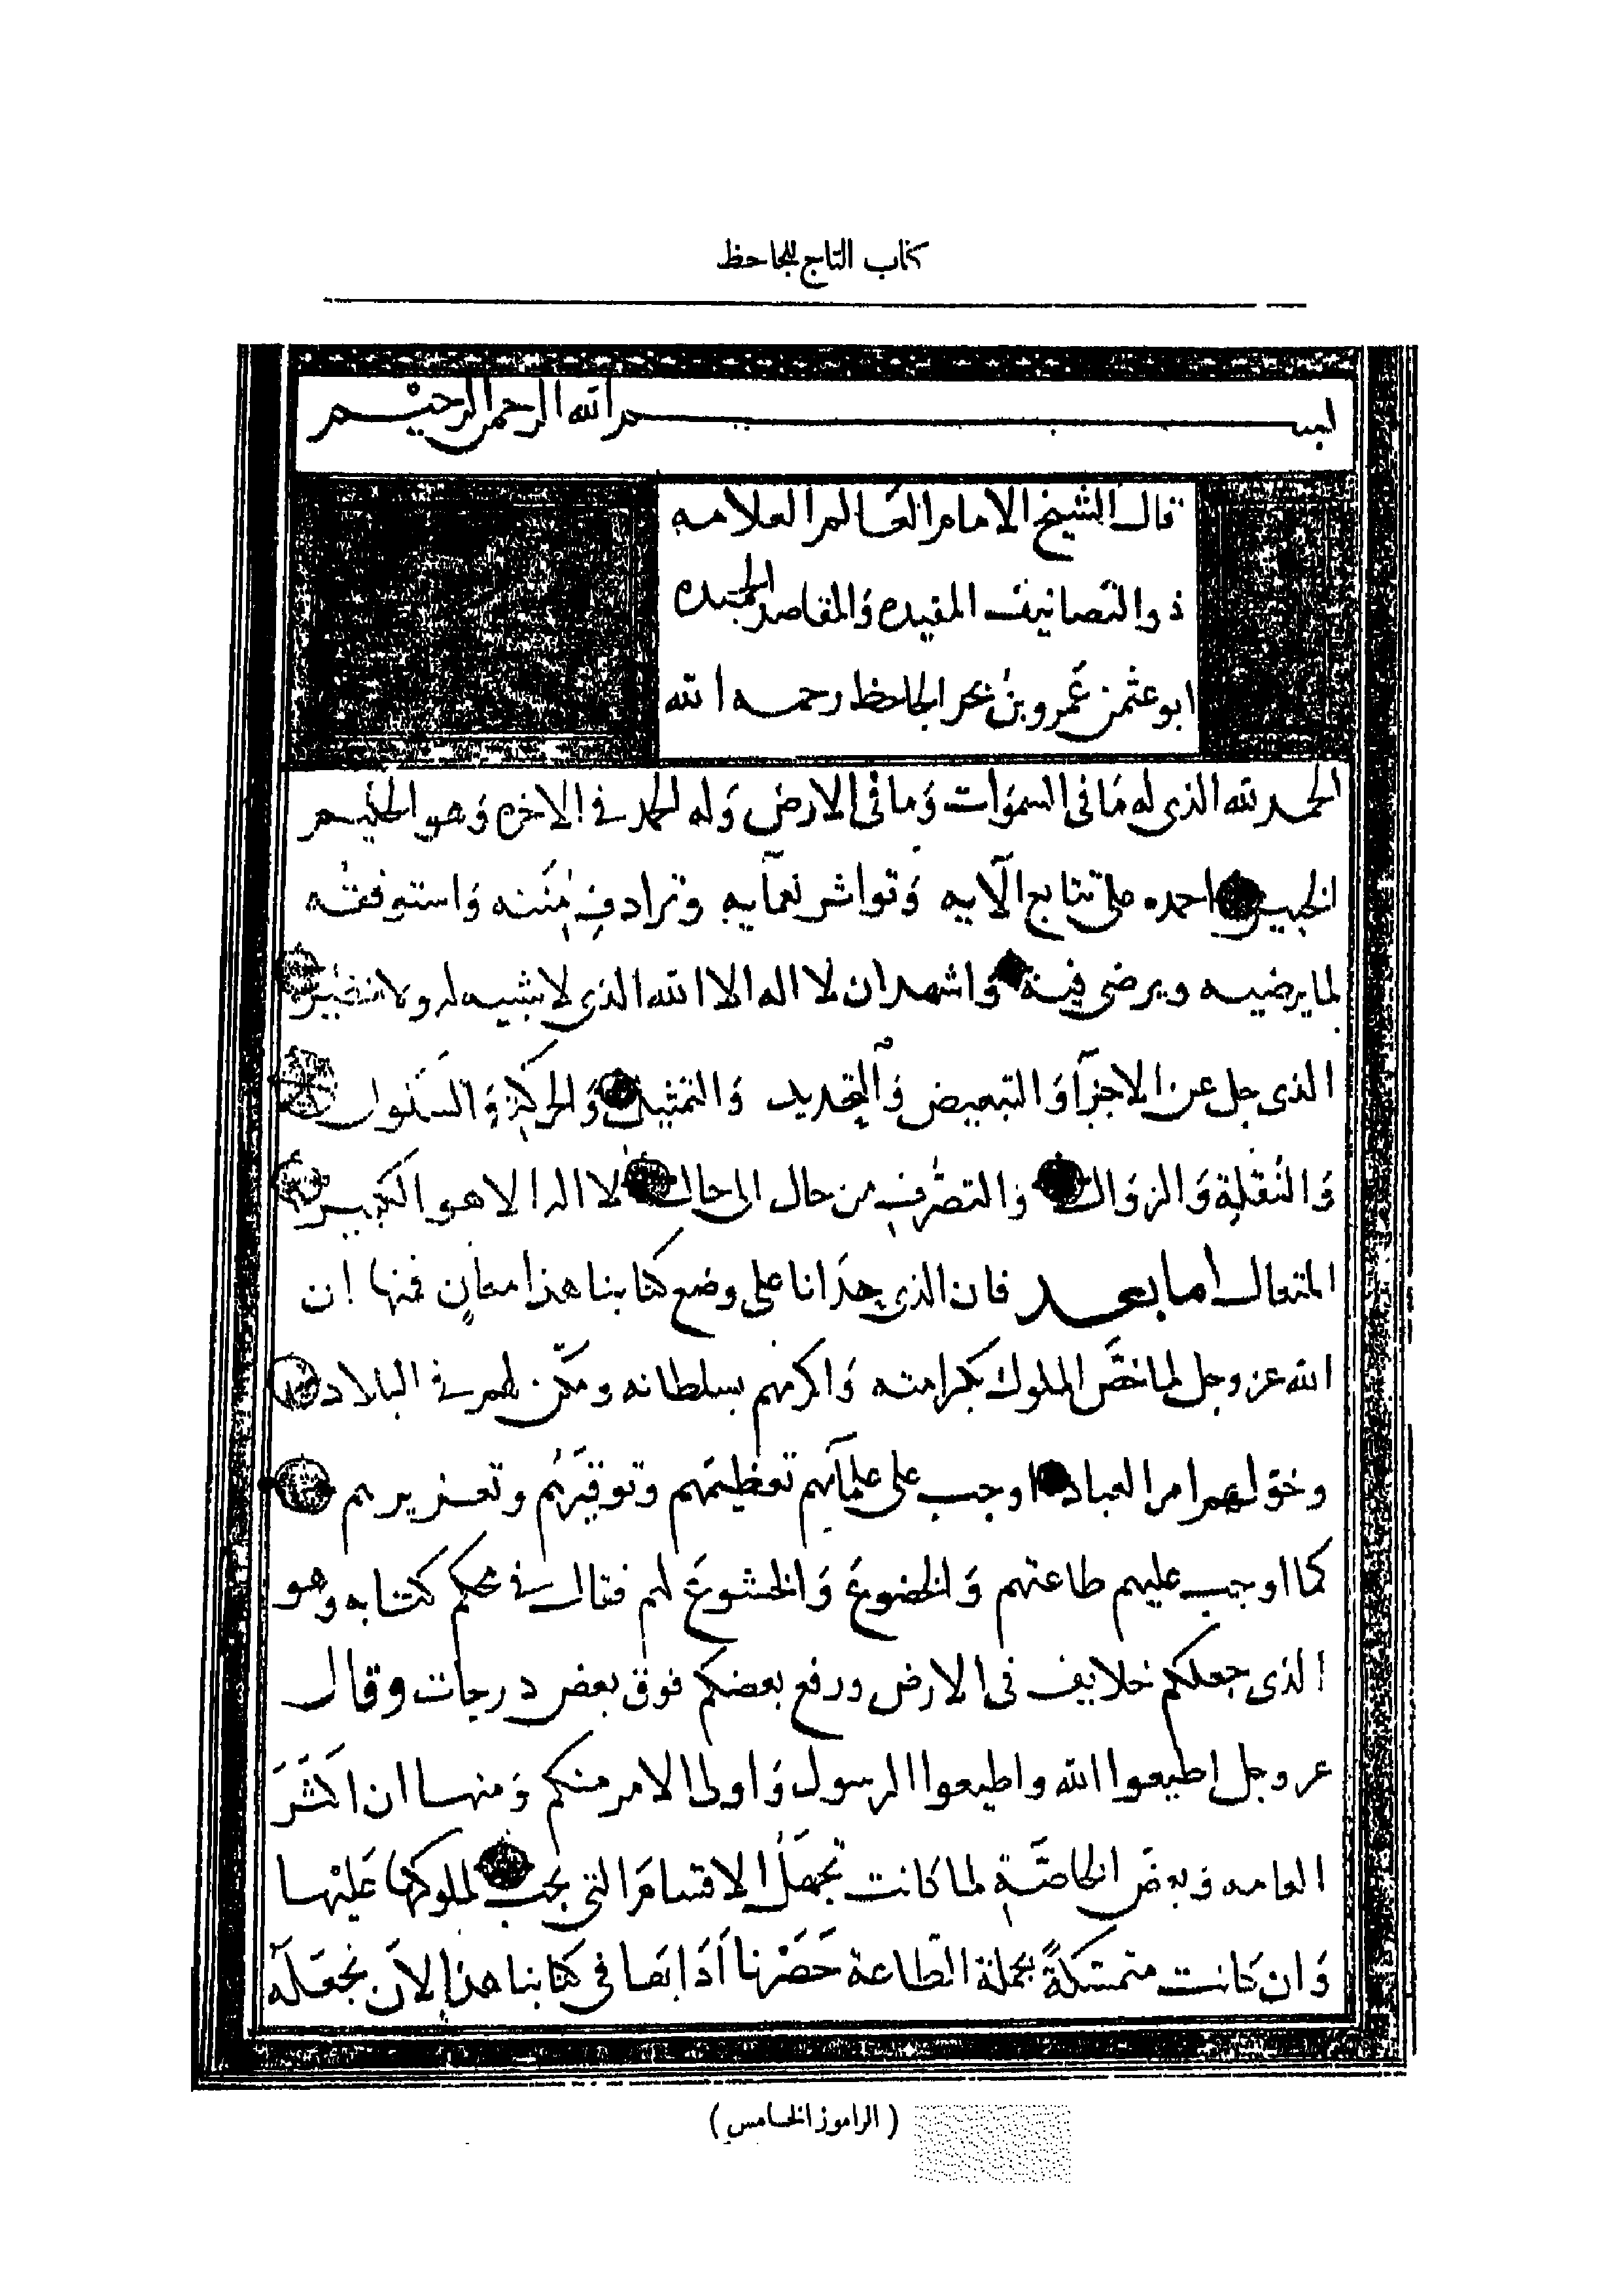 كتاب التاج للجاحظ
بسم الله الرحمن الرحيم
قال الشيخ الامام العالم العلامه
ذو التصانيف المفيده وَالمقاصد الحميده
ابو عثمن عَمرو بن بحر الجاحظ رحمه الله
الحمد لله الذى له مَا فى السموَات وَما فى الارض وَله الحمد فى الاخره وَهو الحكيم
الخبير احمده على تتابع الآيه وَتواتر نعمآيه وترادفِ مِنَنه وَاستوفقه
لما يرضيه ويرضى فيه وَاشهد ان لا اله الا الله الذى لا شبيه له ولا نظير
الذى جل عن الاجزآ وَالتبعيض وَالتحديد وَالتمثيل وَالحركةِ وَالسكون
وَالنُقلةِ وَالزوَال وَالتصرُّفِ من حال الى حال لا اله الا هو الكبير
المتعال اما بعد فان الذى حدَانا على وضع كتابنا هذا معانٍ فمنها ان
الله عز وجل لما خصَّ الملوك بكرامته وَاكرمهم بسلطانه ومكّن لهم فى البلاد
وخوّلهم امر العباد اوجب على علمآيهم تعظيمَهم وتوقيرَهُم وتعزيرهم
كما اوجب عليهم طاعتهم وَالخضوعَ وَالخشوعَ لهم فقال فى محكم كتابه وهو
الذى جعلكم خلايف فى الارض ورفع بعضكم فوق بعض درجات وقال
عز وجل اطيعوا الله واطيعوا الرسول وَاولى الامر منكم وَمنها ان اكثَرَ
العامه وبعضَ الخاصَّةِ لما كانت تجهَلُ الاقسَامَ التى تجب لملوكها عَليْها
وَان كانت متمسّكةً بجملة الطّاعة حَصَرْنا آدَابَها فى كتابنا هذا لاَن نجعَلَه
(الراموز الخامس)